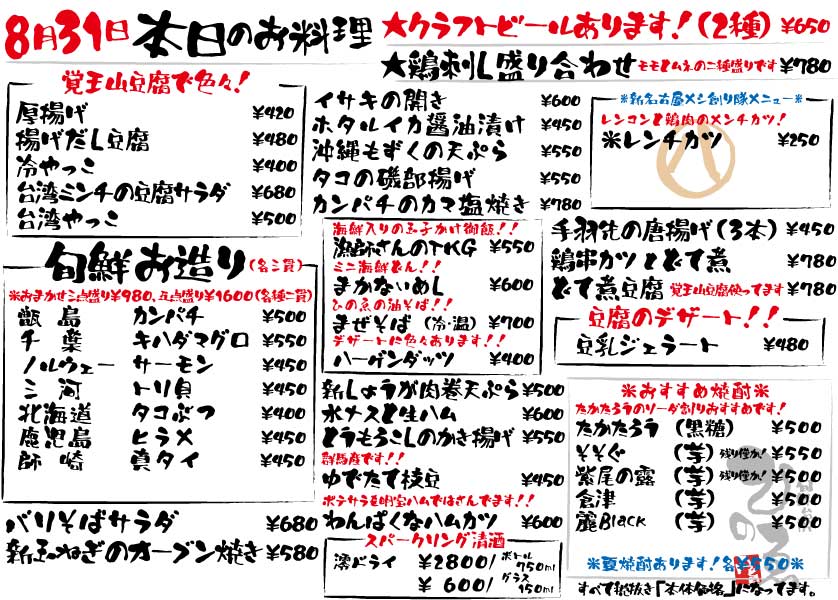 8月31日 本日のお料理
★クラフトビールあります!(2種) ¥650
★鶏刺し盛り合わせ モモとムネの二種盛りです ¥780
覚王山豆腐で色々!
厚揚げ ¥420
揚げだし豆腐 ¥480
冷やっこ ¥400
台湾ミンチの豆腐サラダ ¥680
台湾やっこ ¥500
旬鮮お造り (各三貫)
※おまかせ三点盛り¥980、五点盛り¥1600(各種二貫)
甑島 カンパチ ¥500
千葉 キハダマグロ ¥550
ノルウェー サーモン ¥450
三河 トリ貝 ¥450
北海道 タコぶつ ¥400
鹿児島 ヒラメ ¥450
師崎 真タイ ¥450
バリそばサラダ ¥680
新玉ねぎのオーブン焼き ¥580
イサキの開き ¥600
ホタルイカ醤油漬け ¥450
沖縄もずくの天ぷら ¥550
タコの磯部揚げ ¥550
カンパチのカマ塩焼き ¥780
海鮮入りの玉子かけ御飯!!
漁師さんのTKG ¥550
ミニ海鮮どん!!
まかないめし ¥600
ひの魚の油そば!!
まぜそば (冷・温) ¥700
デザートに色々あります!!
ハーゲンダッツ ¥400
新しょうが肉巻天ぷら ¥500
水ナスと生ハム ¥600
とうもろこしのかき揚げ ¥550
群馬産です!!
ゆでたて枝豆 ¥450
ポテサラを明宝ハムではさんでます!!
わんぱくなハムカツ ¥600
スパークリング清酒
澪ドライ ¥2800/ボトル750ml
¥600/グラス150ml
※新名古屋メシ創り隊メニュー※
レンコンと鶏肉のメンチカツ!
米レンチカツ ¥250
手羽先の唐揚げ(3本) ¥450
鶏串カツとどて煮 ¥780
どて煮豆腐 覚王山豆腐使ってます ¥780
豆腐のデザート!!
豆乳ジェラート ¥480
※おすすめ焼酎※
たかたろうのソーダ割りおすすめです!
たかたろう (黒糖) ¥500
そそぐ (芋) 残り僅か! ¥550
紫尾の露 (芋) 残り僅か! ¥500
倉津 (芋) ¥500
麗Black (芋) ¥500
※夏焼酎あります!各¥550※
すべて税抜き「本体価格」になってます。